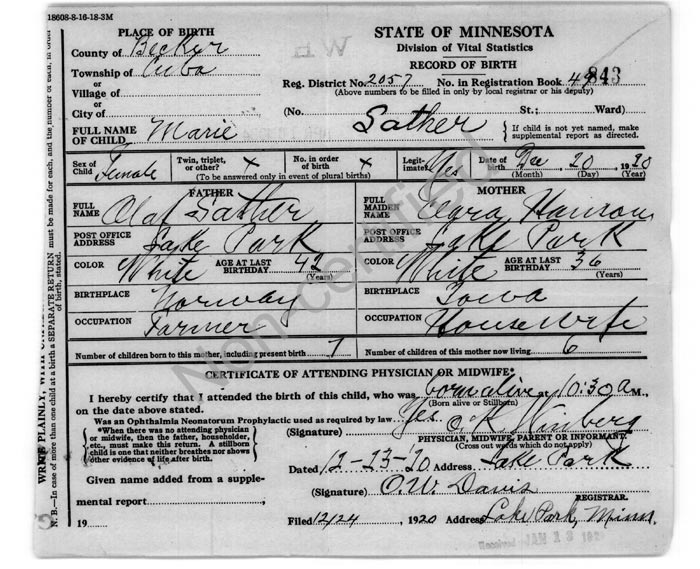 18608-8-16-18-3M
PLACE OF BIRTH
County of Becker
Township of Cuba
or
Village of
or
City of
STATE OF MINNESOTA
Division of Vital Statistics
RECORD OF BIRTH
Reg. District No. 2057 No. in Registration Book 843
(Above numbers to be filled in only by local registrar or his deputy)
(No. St.; Ward)
FULL NAME OF CHILD Marie Sather { If child is not yet named, make supplemental report as directed.
Sex of Child Female Twin, triplet, or other? X No. in order of birth X Legitimate? Yes Date of birth Dec 20 1920
(To be answered only in event of plural births) (Month) (Day) (Year)
FATHER
FULL NAME Olaf Sather
POST OFFICE ADDRESS Lake Park
COLOR White AGE AT LAST BIRTHDAY 42 (Years)
BIRTHPLACE Norway
OCCUPATION Farmer
MOTHER
FULL MAIDEN NAME Hanson
POST OFFICE ADDRESS Lake Park
COLOR White AGE AT LAST BIRTHDAY 36 (Years)
BIRTHPLACE Iowa
OCCUPATION Housewife
Number of children born to this mother, including present birth 7 Number of children of this mother now living 6
CERTIFICATE OF ATTENDING PHYSICIAN OR MIDWIFE*
I hereby certify that I attended the birth of this child, who was born alive at 10:30 a M.,
(Born alive or Stillborn)
on the date above stated.
Was an Ophthalmia Neonatorum Prophylactic used as required by law? Yes.
*When there was no attending physician
or midwife, then the father, householder,
etc., must make this return. A stillborn
child is one that neither breathes nor shows
other evidence of life after birth.
(Signature)
PHYSICIAN, MIDWIFE, PARENT OR INFORMANT.
(Cross out words which do not apply)
Dated 12-23-20 Address Lake Park
Given name added from a supplemental report
(Signature) O.W. Davis
REGISTRAR.
19 Filed 12/24, 1920 Address Lake Park, Minn.
Received JAN 13 192
WRITE PLAINLY, WITH
N. B.—In case of more than one child at a birth a SEPARATE RETURN must be made for each, and the number of each, in order of birth, stated.
Non-certified